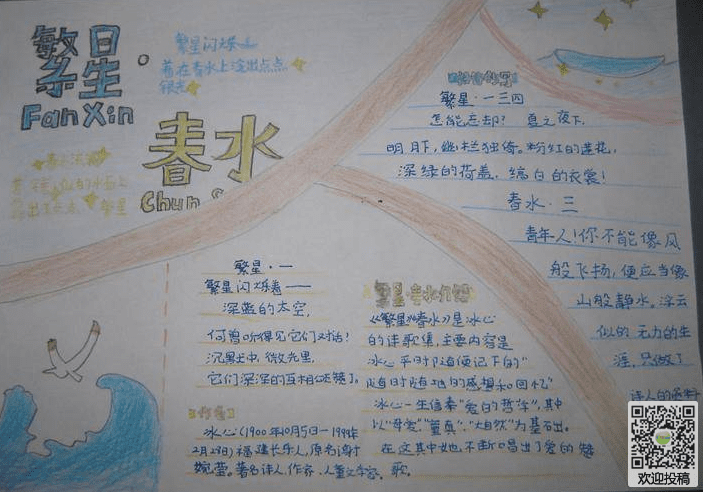 繁星·
Fan Xin
繁星闪烁
着在春水上淀出点点
银光
春水
Chun
繁星·一三四
怎能忘却？ 夏之夜下，
明月下，幽栏独倚。粉红的莲花，
深绿的荷盖，缟白的衣裳！
春水·三
青年人！你不能像风
般飞扬，便应当像
山般静水。浮云
似的 无力的生
涯，只做了
诗人的资料
繁星·一
繁星闪烁着——
深蓝的太空，
何曾听得见它们对话！
沉默中，微光里，
它们深深的互相颂赞了。
冰心（1900年10月5日—1999年
2月28日）福建长乐人，原名谢
婉莹。著名诗人，作家，儿童文学家。
繁星·春水介绍
《繁星》《春水》是冰心
的诗歌集，主要内容是
冰心平时随便记下的“
随时随地的感想和回忆”
冰心一生信奉“爱的哲学”，其中
以“母爱”“童真”，“大自然”为基石出。
在这其中她不断唱出了爱的赞
歌。
欢迎投稿